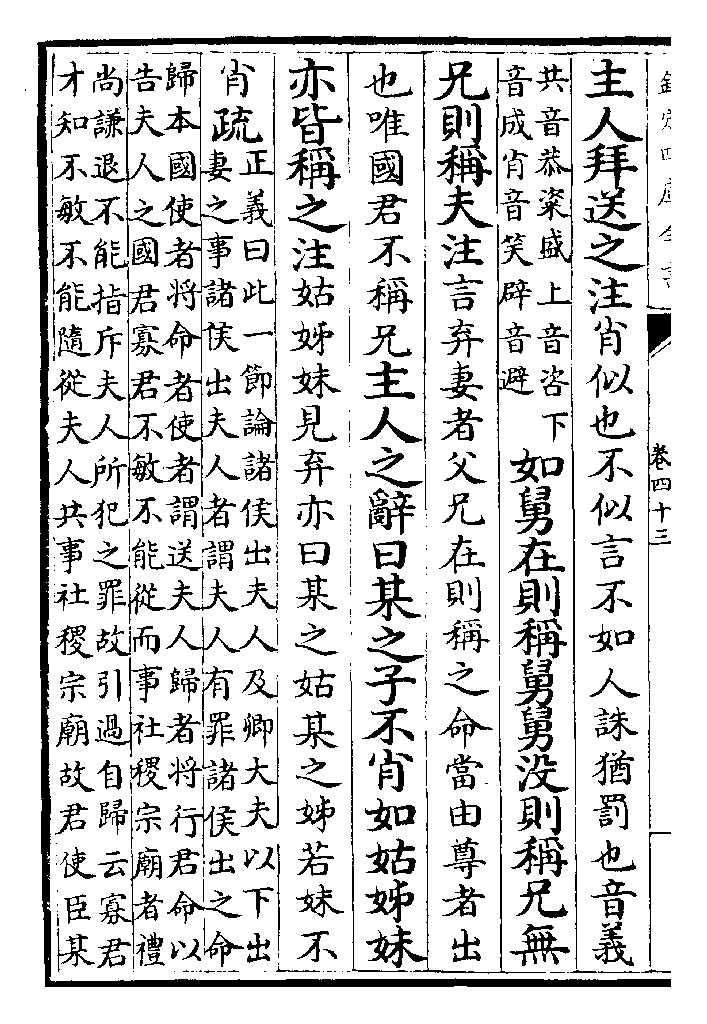 欽定四庫全書
卷四十三
主人拜送之注肖似也不似言不如人誅猶罰也音義
共音恭粢盛上音咨下
音成肖音笑辟音避
如舅在則稱舅舅没則稱兄無
兄則稱夫注言弃妻者父兄在則稱之命當由尊者出
也唯國君不稱兄主人之辭曰某之子不肖如姑姊妹
亦皆稱之注姑姊妹見弃亦曰某之姑某之姊若妹不
肖疏
正義曰此一節論諸侯出夫人及卿大夫以下出
妻之事諸侯出夫人者謂夫人有罪諸侯出之命
歸本國使者將命者使者謂送夫人歸者將行君命以
告夫人之國君寡君不敏不能從而事社稷宗廟者禮
尚謙退不能指斥夫人所犯之罪故引過自歸云寡君
才知不敏不能隨從夫人共事社稷宗廟故君使臣某